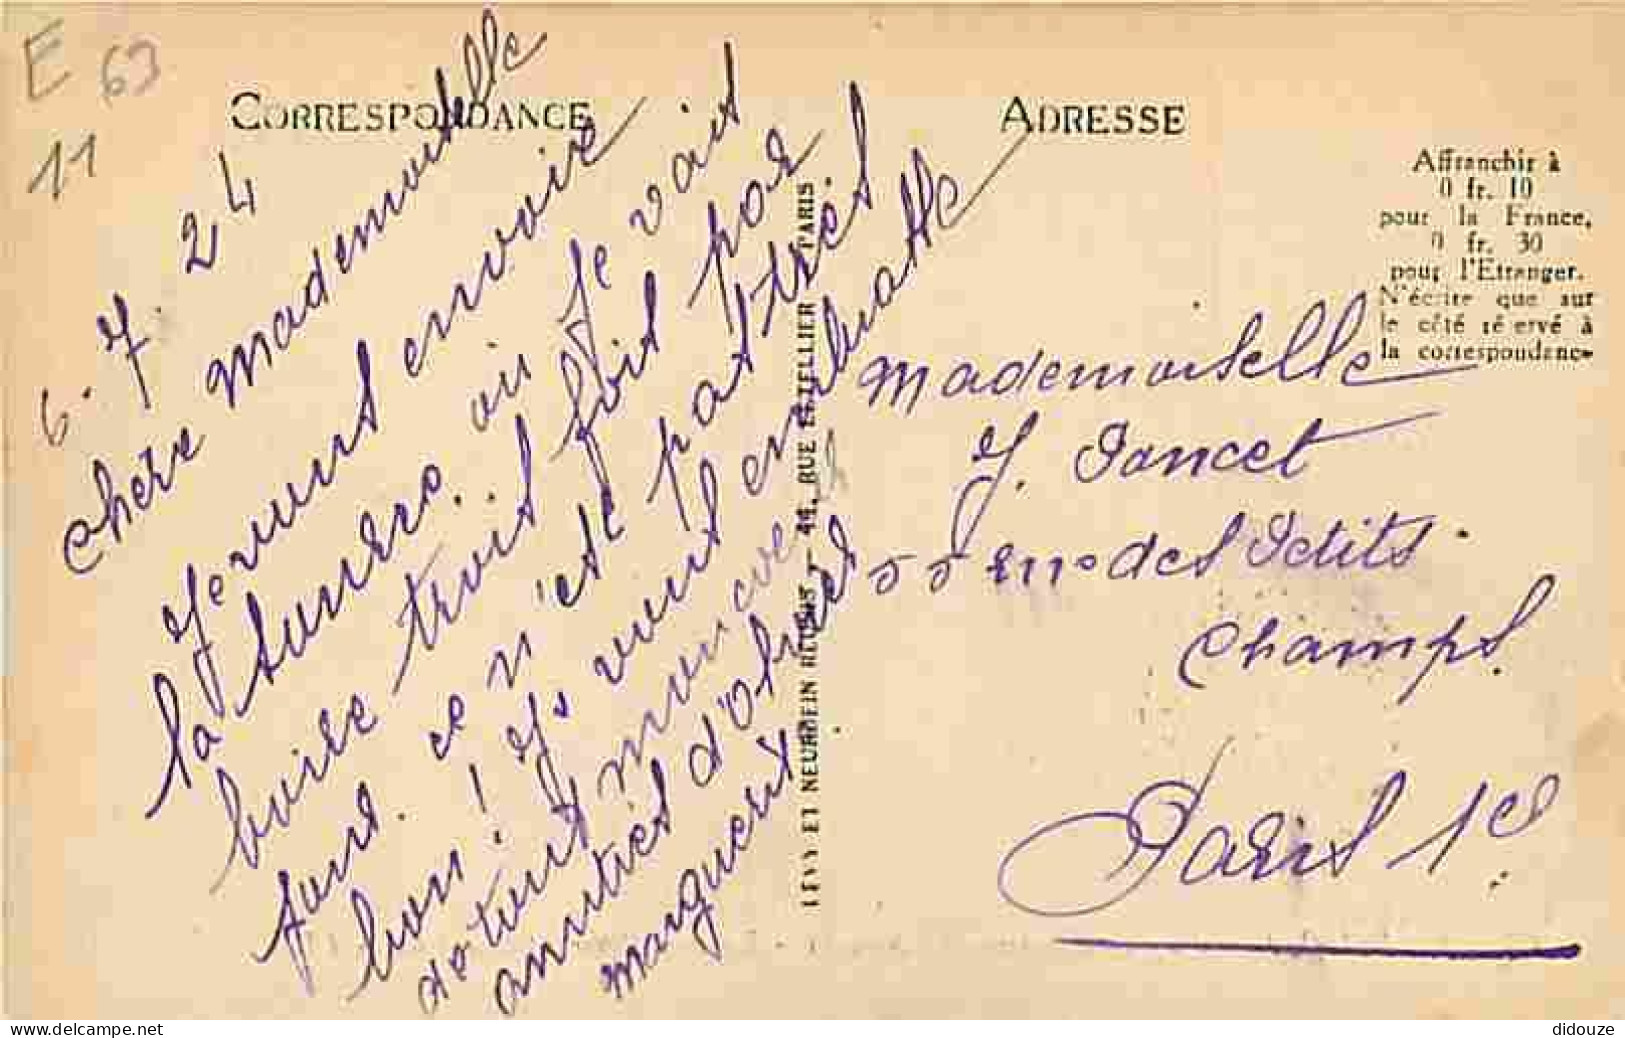 E 63
11
CORRESPONDANCE
6. 7. 24
Chère Mademoiselle
Je vous envoie
la où Je vais
boire trois fois par
Jour. ce n'est pas très
bon! Je vous embrasse
de tout mon
amitiés d'
Marguerite
LEVY ET NEURDEIN REUNIS — 44, RUE LETELLIER PARIS.
ADRESSE
Affranchir à
0 fr. 10
pour la France,
0 fr. 30
pour l'Etranger.
N'écrire que sur
le côté réservé à
la correspondance
Mademoiselle
J. Poncet
55 des Petits
Champs.
Paris 1e
didouze